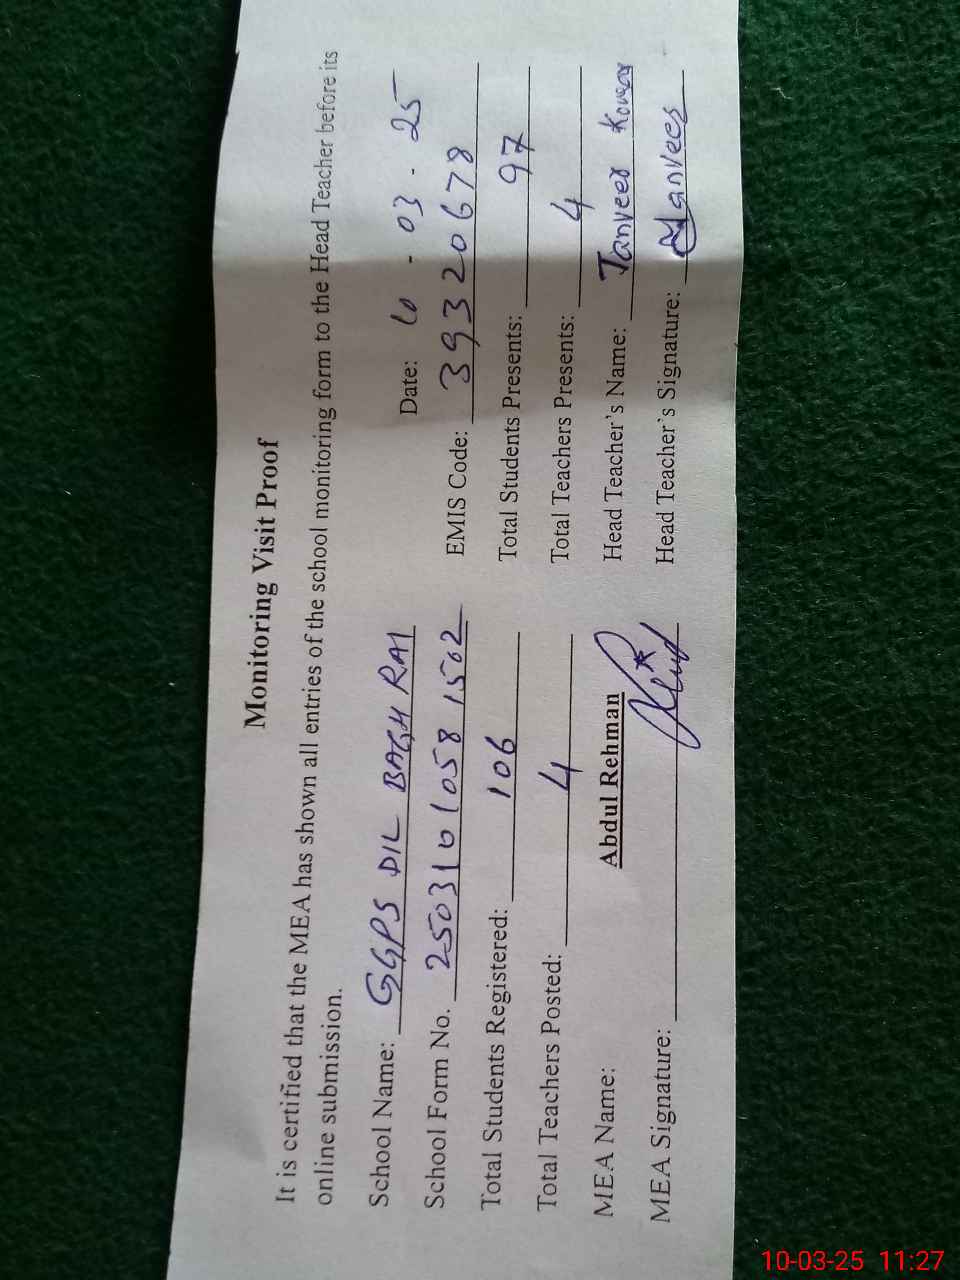 Monitoring Visit Proof
It is certified that the MEA has shown all entries of the school monitoring form to the Head Teacher before its
online submission.
Date: 10 - 03 - 25
School Name: GGPS DIL BAGH RAI
School Form No. 2503101058 1502 EMIS Code: 39320678
Total Students Registered: 106 Total Students Presents: 97
Total Teachers Posted: 4 Total Teachers Presents: 4
MEA Name: Abdul Rehman Head Teacher's Name: Tanveer Kowser
MEA Signature: Head Teacher's Signature: Tanveer
10-03-25 11:27